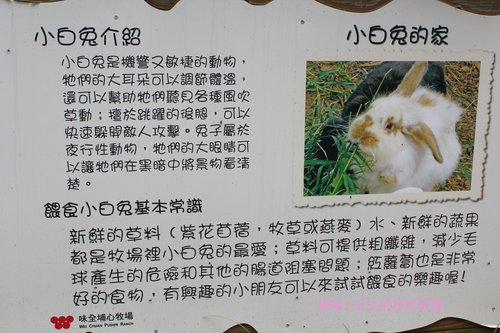 小白兔介紹
小白兔是機警又敏捷的動物，
牠們的大耳朵可以調節體溫，
還可以幫助牠們聽見各種風吹
草動；擅於跳躍的後腿，可以
快速躲開敵人攻擊。兔子屬於
夜行性動物，牠們的大眼睛可
以讓牠們在黑暗中將景物看清
楚。
小白兔的家
餵食小白兔基本常識
新鮮的草料（紫花苜蓿，牧草或燕麥）水、新鮮的蔬果
都是牧場裡小白兔的最愛；草料可提供粗纖維，減少毛
球產生的危險和其他的腸道阻塞問題；紅蘿蔔也是非常
好的食物，有興趣的小朋友可以來試試餵食的樂趣喔!
味全埔心牧場
WEI CHUAN PUSHIN RANCH